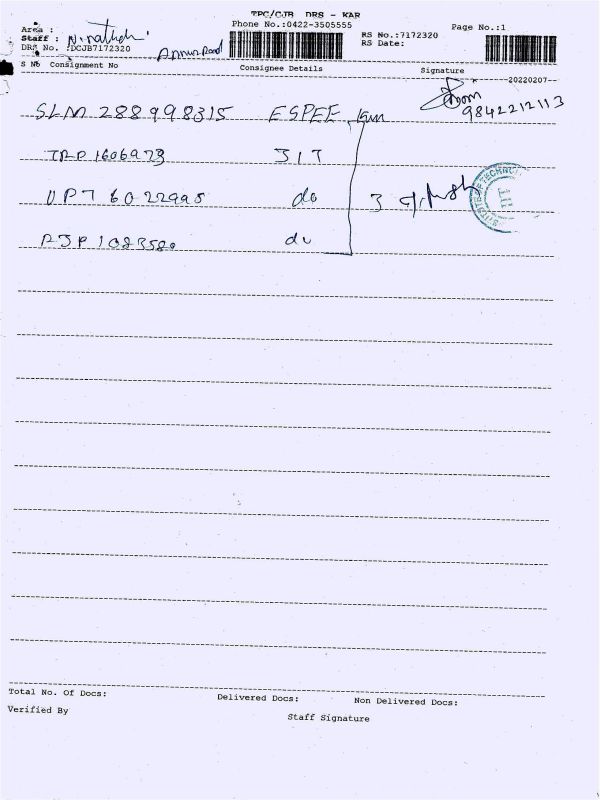 TPC/CJB DRS - KAR
Phone No.:0422-3505555
Page No.:1
Area :
Staff :
DRS No. :DCJB7172320
RS No.:7172320
RS Date:
S No Consignment No Consignee Details Signature
--20220207--
SLM 288998315 ESPEE
9842212113
TRP 1606973 JIT
UPT 6022995 do
PJP 1083580 do
3
Total No. Of Docs: Delivered Docs: Non Delivered Docs:
Verified By Staff Signature